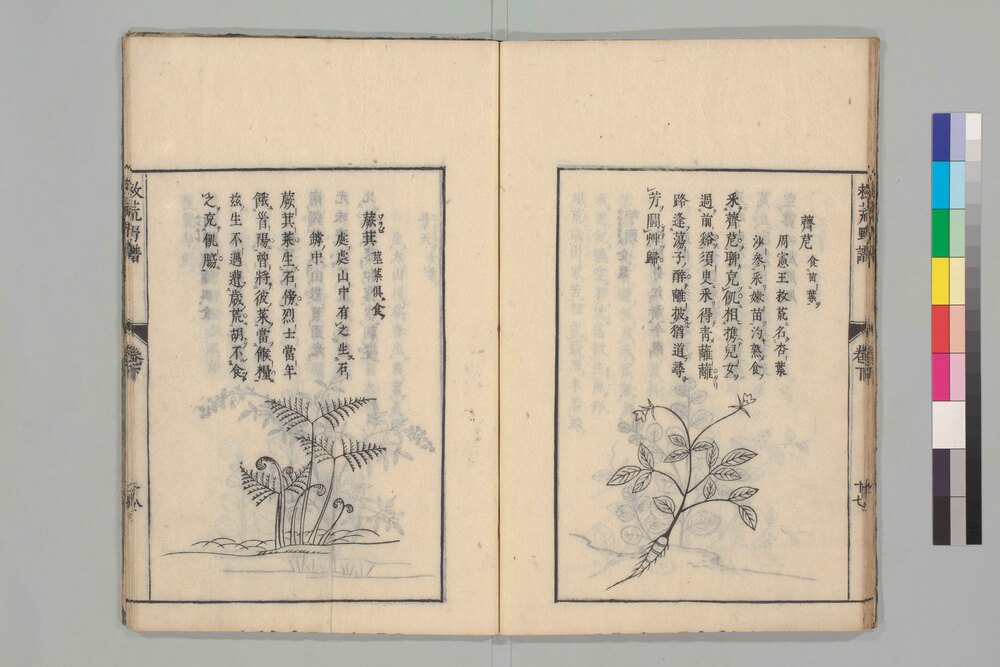 薺苨 食苗葉
周憲王救荒名杏葉
沙參采嫩苗汋熟食
采薺苨聊充飢相携兒女
過前谿須臾采得青離離
路逢蕩子醉離披猶道尋
芳鬬艸歸
救荒野譜
卷下
十七
蕨萁 莖葉俱食
處處山中有之生石
罅中
蕨萁萊生石傍烈士當年
餓首陽曾將彼菜當餱糧
茲生不遇遭歲荒胡不食
之充飢腸
救荒野譜
卷下
十八